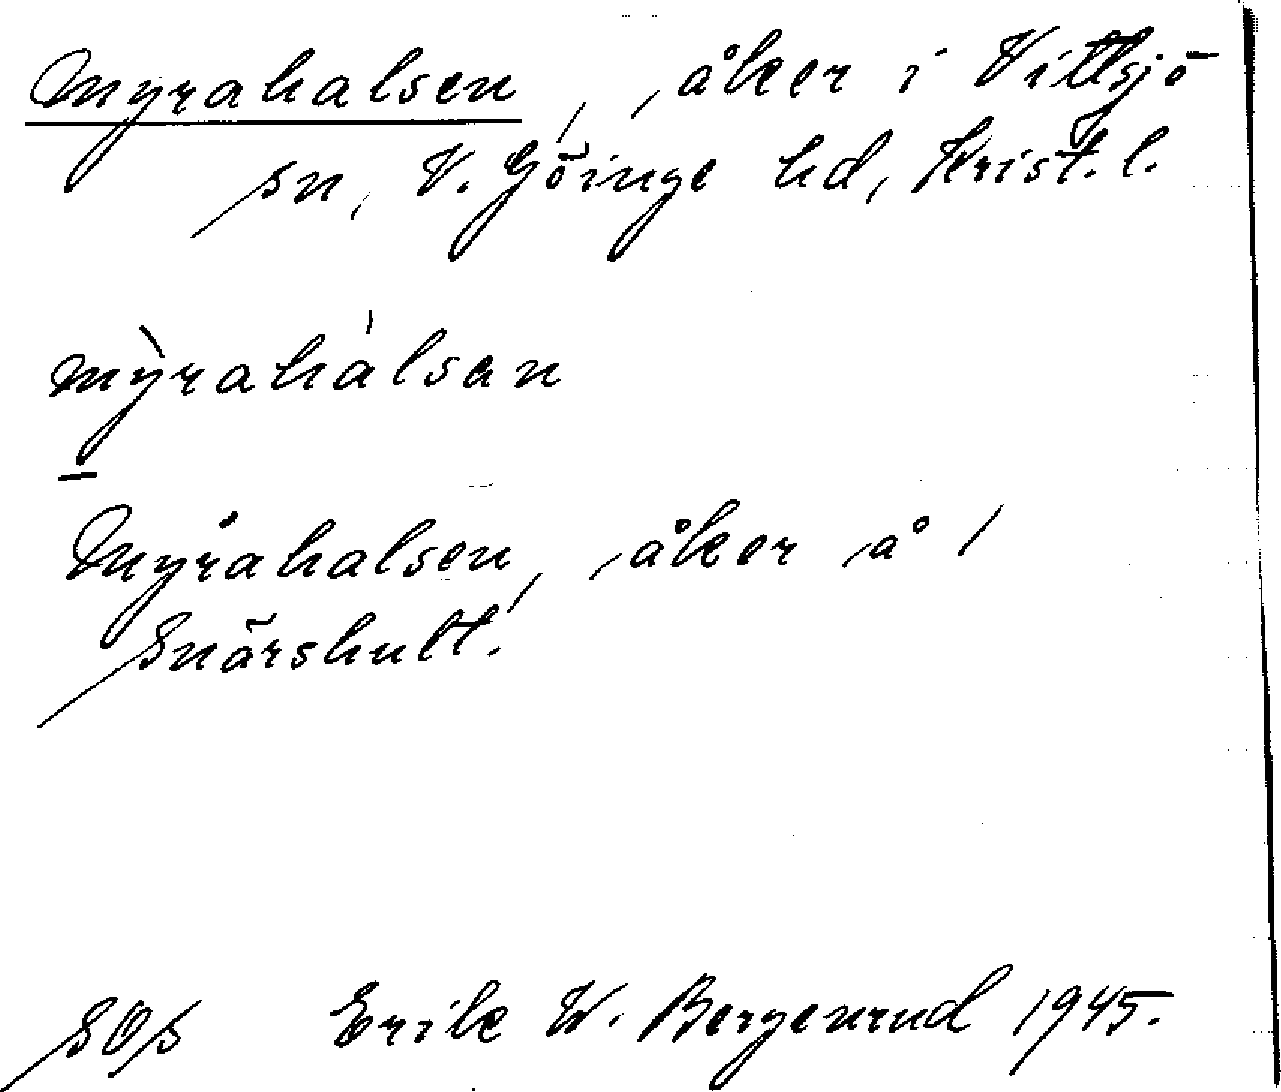 Myrahalsen, åker i Vittsjö
sn, V. Göinge hd, Krist. l.
mỳrahálsan
Myrahalsen, åker å /
Snärshult.
SOS Erik W. Bergenrud 1945.